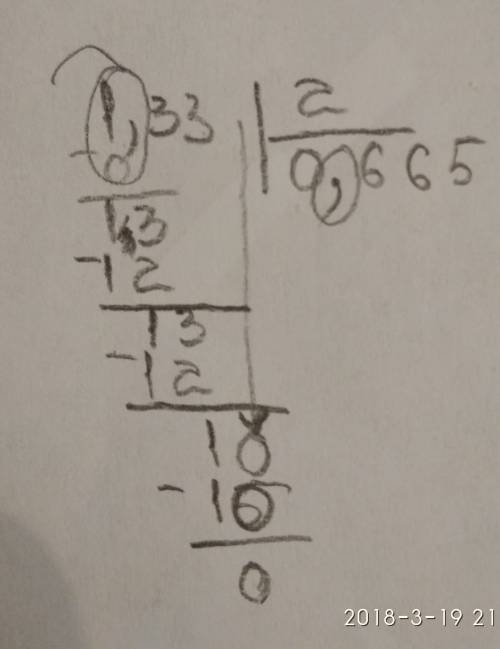 1,33 2
-0 0,665
13
-12
13
-12
10
-10
0
2018-3-19 21